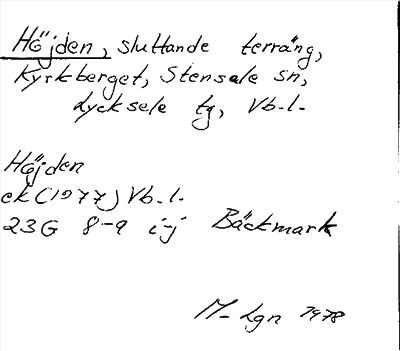 Höjden, sluttande terräng,
Kyrkberget, Stensele sn,
Lycksele tg, Vb.l.
Höjden
ek (1977) Vb.l.
23G 8-9 i-j Bäckmark
M-Lgn 1978